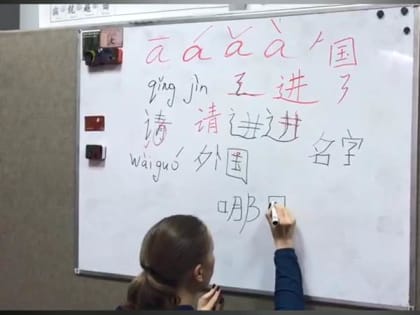 ā á ǎ à 国
qǐng jìn 进
请 请 进 进 名字
wàiguó 外国
哪